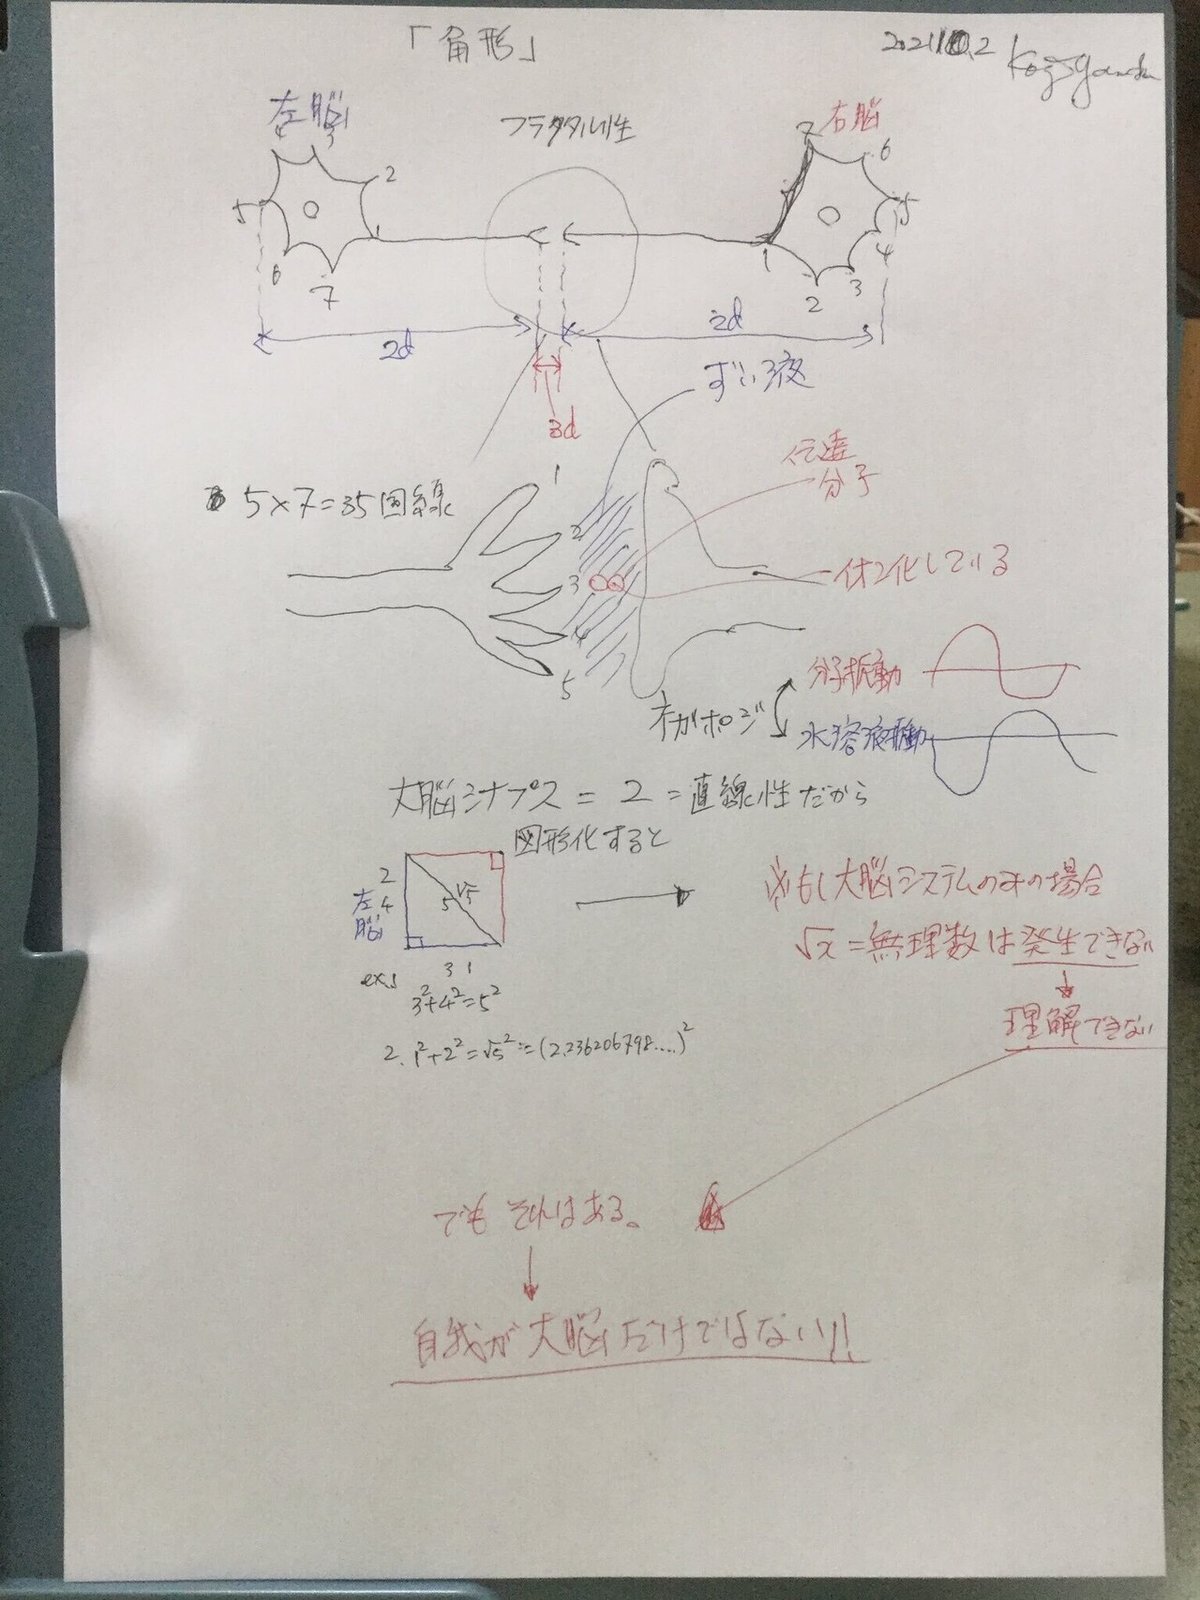 「角形」
2021 10.2
左脳
フラクタル性
右脳
3
2
1
5
6
7
7
6
5
4
3
2
1
2d
2d
3d
ずい液
伝達
分子
5×7=35回線
1
2
3
4
5
イオン化している
分子振動
ネガポジ
水溶液振動
大脳シナプス = 2 = 直線性だから
図形化すると
2
左4
脳
5 √5
3 1
ex.1
3²+4²=5²
2. 1²+2²=√5²=(2.236206798....)²
※もし大脳システムのみの場合
√x=無理数は発生できない
理解できない
でもそれはある。
自我が大脳だけではない!!